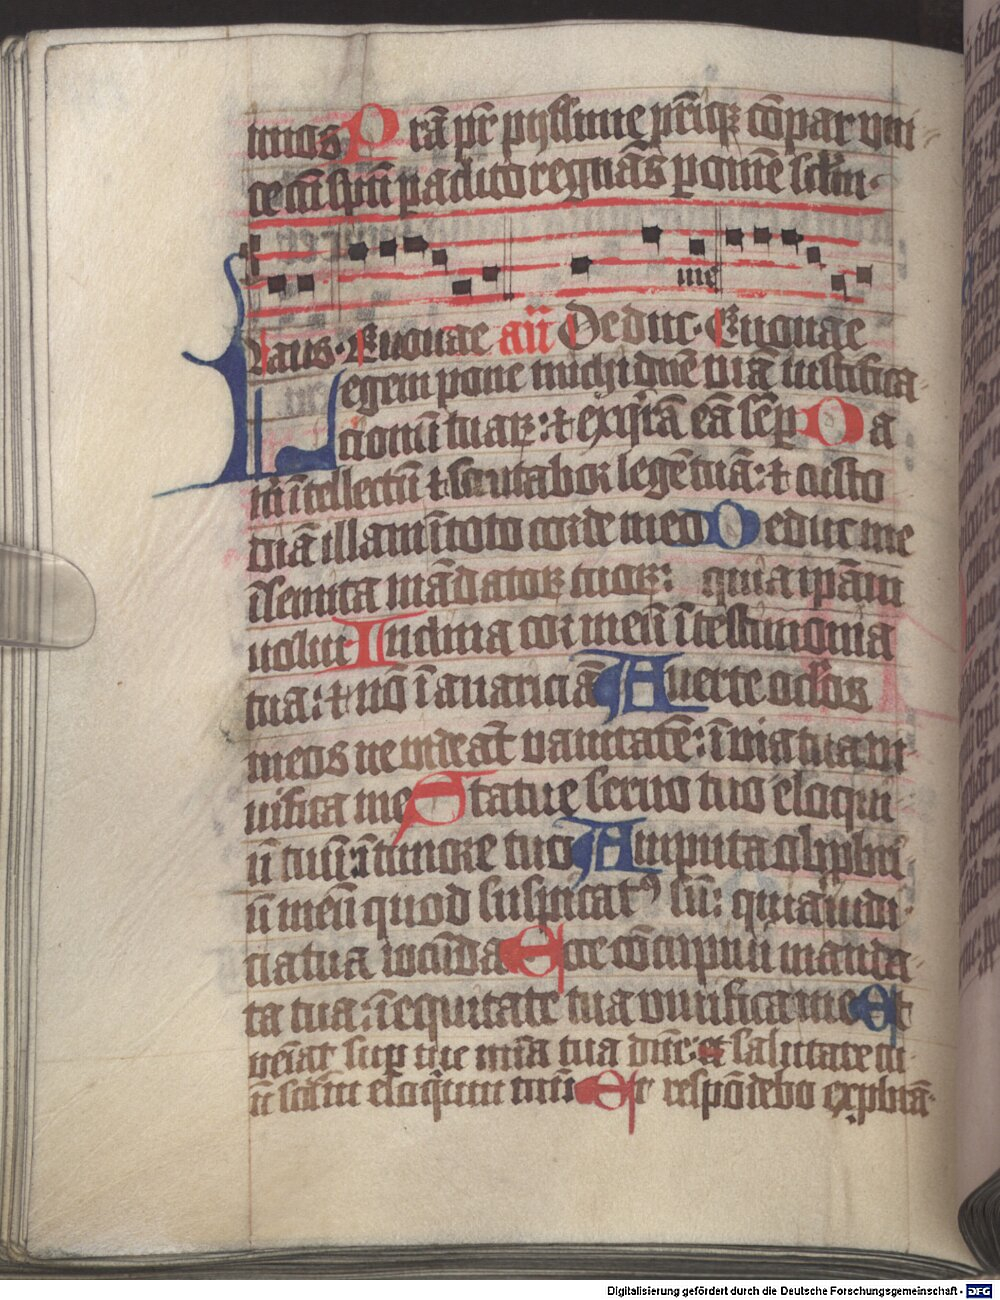 imos P rā pr̄ pijssime pr̄isqꝫ cōpar uni
ce cū spū paclito regnās p om̄e sclm̄
me
Laus Euouae añ Deduc Euouae
Legem pone michi dn̄e uiā iustifica
cionū tuaꝝ: ⁊ exqͥrā eā sēp Da
m̄ ītellectū ⁊ scrutabor legē tuā: ⁊ custo
diā illam ī toto corde meo Deduc me
ī semita mādatoꝝ tuoꝝ: quia ip̄am
uolui Inclina cor meū ī testimonia
tua: ⁊ nō ī auariciā Auerte oclos
meos ne uideāt uanitatē: ī uia tua ui
uifica me Statue seruo tuo eloqui
ū tuū: ī timore tuo Amputa obpbri
ū meū quod suspicatꝰ sū: quia iudi
cia tua iocūda Ecce cōcupiui manda
ta tua: ī equitate tua uiuifica me Et
ueīat sup me mīa tua dn̄e: salutare tu
ū scdm eloqͥum tuū Et respōdebo expbrā
Digitalisierung gefördert durch die Deutsche Forschungsgemeinschaft - DFG